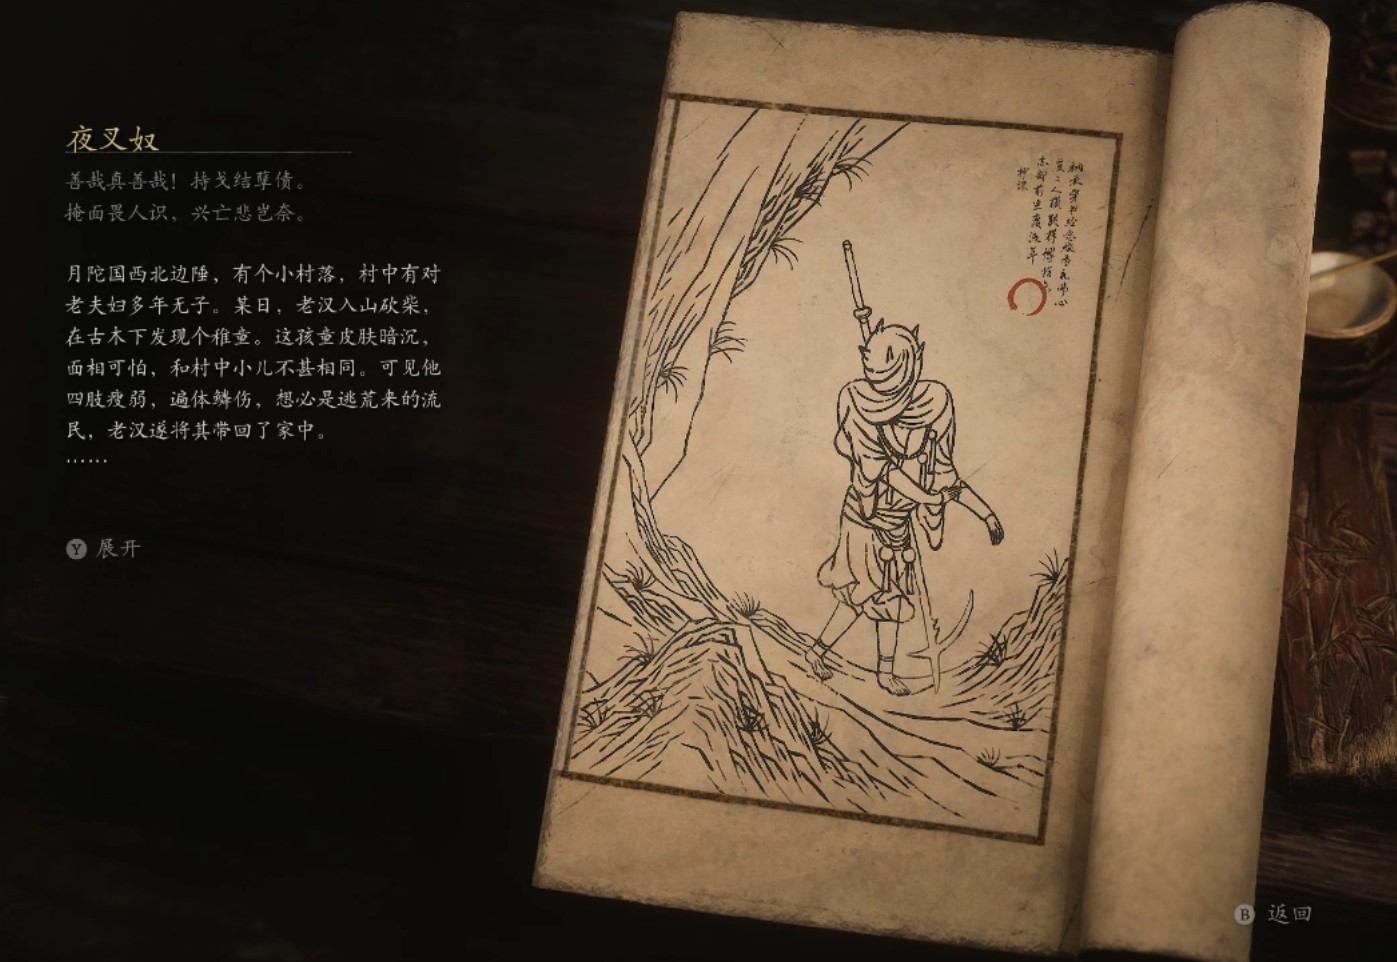 夜叉奴
善哉真善哉！持戈结孽债。
掩面畏人识，兴亡悲岂奈。
月陀国西北边陲，有个小村落，村中有对
老夫妇多年无子。某日，老汉入山砍柴，
在古木下发现个稚童。这孩童皮肤暗沉，
面相可怕，和村中小儿不甚相同。可见他
四肢瘦弱，遍体鳞伤，想必是逃荒来的流
民，老汉遂将其带回了家中。
……
Y 展开
B 返回